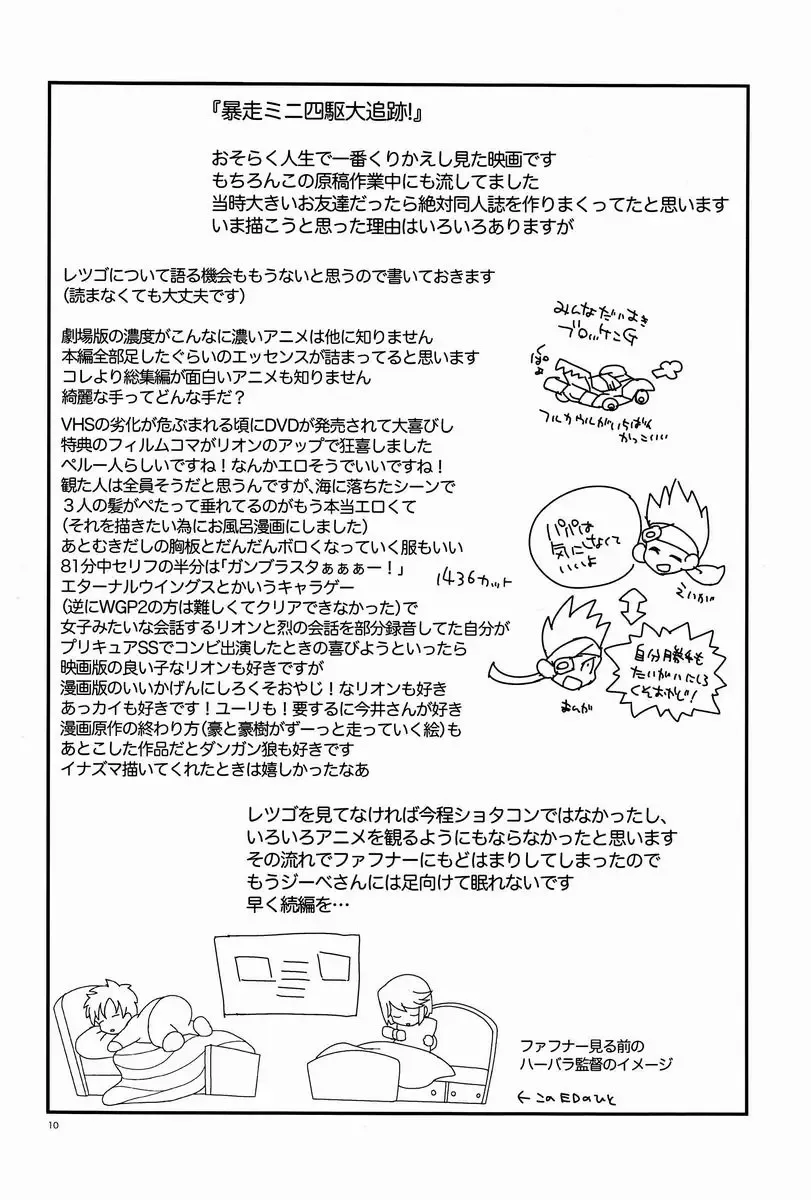 『暴走ミニ四駆大追跡!』
おそらく人生で一番くりかえし見た映画です
もちろんこの原稿作業中にも流してました
当時大きいお友達だったら絶対同人誌を作りまくってたと思います
いま描こうと思った理由はいろいろありますが
レツゴについて語る機会ももうないと思うので書いておきます
(読まなくても大丈夫です)
劇場版の濃度がこんなに濃いアニメは他に知りません
本編全部足したぐらいのエッセンスが詰まってると思います
コレより総集編が面白いアニメも知りません
綺麗な手ってどんな手だ?
VHSの劣化が危ぶまれる頃にDVDが発売されて大喜びし
特典のフィルムコマがリオンのアップで狂喜しました
ペルー人らしいですね!なんかエロそうでいいですね!
観た人は全員そうだと思うんですが、海に落ちたシーンで
3人の髪がぺたって垂れてるのがもう本当エロくて
(それを描きたい為にお風呂漫画にしました)
あとむきだしの胸板とだんだんボロくなっていく服もいい
81分中セリフの半分は「ガンブラスタぁぁぁー!」
エターナルウイングスとかいうキャラゲー
(逆にWGP2の方は難しくてクリアできなかった)で
女子みたいな会話するリオンと烈の会話を部分録音してた自分が
プリキュアSSでコンビ出演したときの喜びようといったら
映画版の良い子なリオンも好きですが
漫画版のいいかげんにしろくそおやじ!なリオンも好き
あっカイも好きです!ユーリも!要するに今井さんが好き
漫画原作の終わり方(豪と豪樹がずーっと走っていく絵)も
あとこした作品だとダンガン狼も好きです
イナズマ描いてくれたときは嬉しかったなあ
みんなだいすき
ブロッケンG
フルカウルがいちばん
かっこいい
1436カット
パパは
気にしなくて
いいよ
えいが
自分勝手も
たいがいにしろ
くそおやじ!
まんが
レツゴを見てなければ今程ショタコンではなかったし、
いろいろアニメを観るようにもならなかったと思います
その流れでファフナーにもどはまりしてしまったので
もうジーベさんには足向けて眠れないです
早く続編を…
ファフナー見る前の
ハーバラ監督のイメージ
←このEDのひと
10